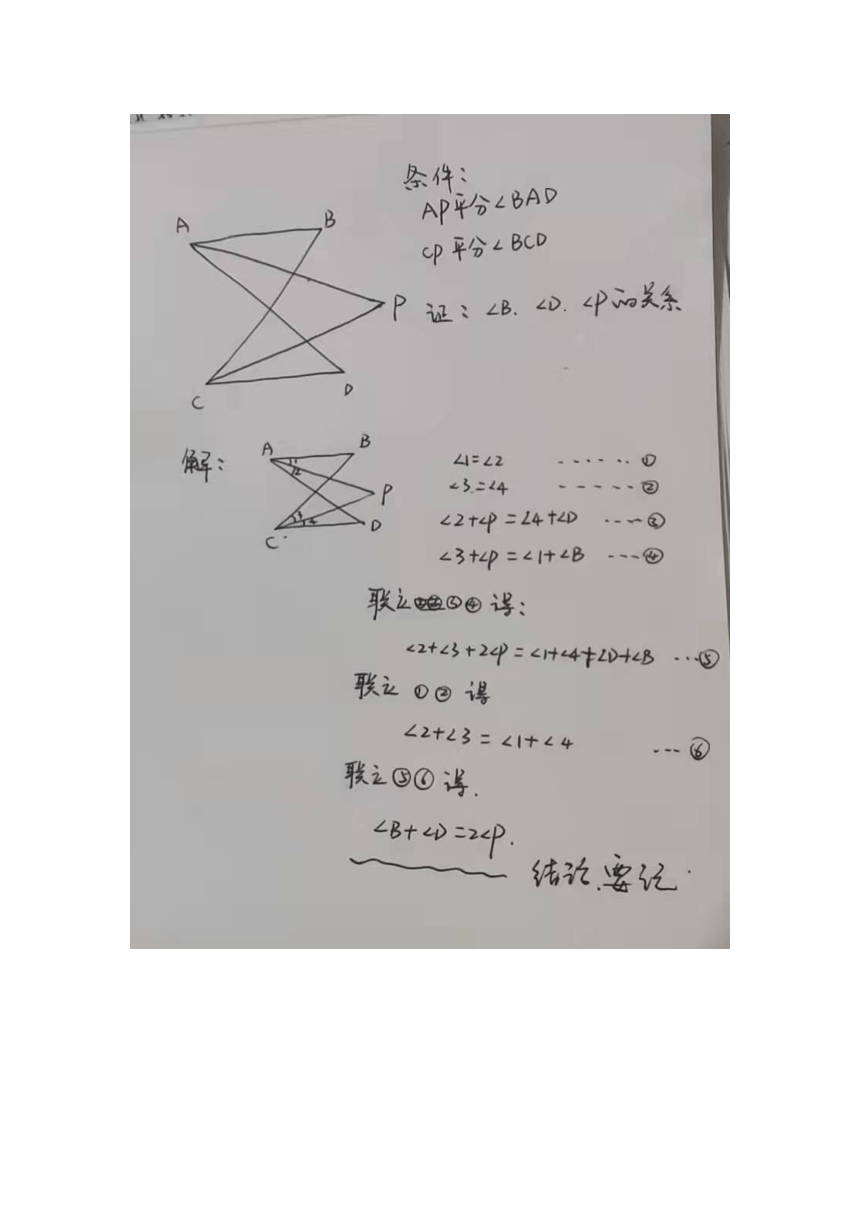 条件：
AP平分∠BAD
CP平分∠BCD
A
B
P
C
D
证：∠B. ∠D. ∠P的关系
解：
A
B
P
C
D
1
2
3
4
∠1=∠2 ······ ①
∠3=∠4 ----- ②
∠2+∠P=∠4+∠D ---- ③
∠3+∠P=∠1+∠B --- ④
联立③④得：
∠2+∠3+2∠P=∠1+∠4+∠D+∠B ··· ⑤
联立 ①② 得
∠2+∠3=∠1+∠4 --- ⑥
联立⑤⑥得.
∠B+∠D=2∠P.
结论.要记